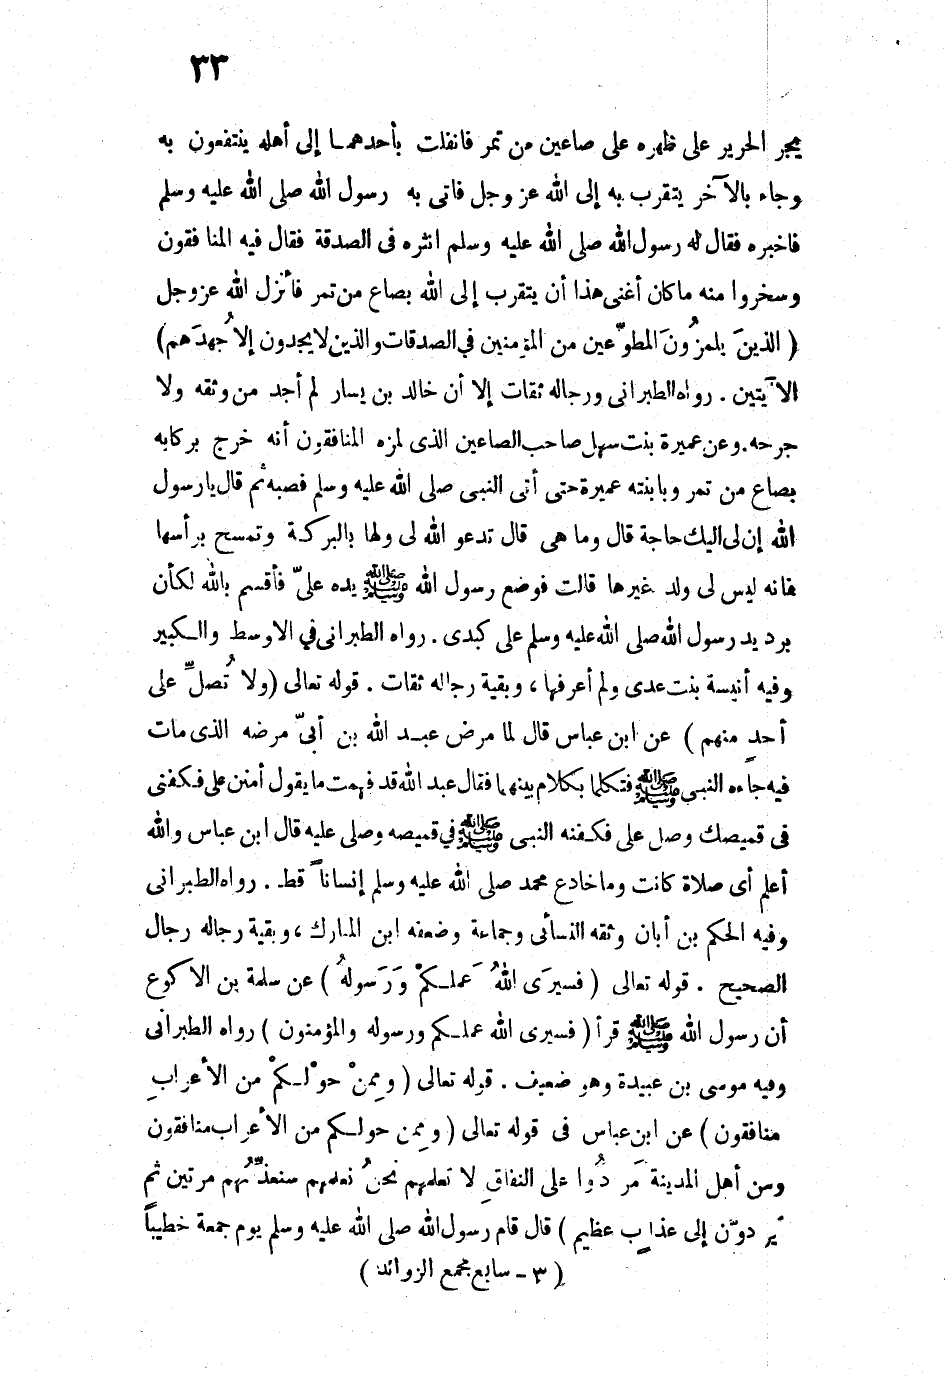 ٣٣
يجر الحرير على ظهره على صاعين من تمر فانفلت بأحدهمـا إلى أهله ينتفعون به
وجاء بالآخر يتقرب به إلى الله عز وجل فاتى به رسول الله صلى الله عليه وسلم
فاخبره فقال له رسول الله صلى الله عليه وسلم انثره فى الصدقة فقال فيه المنافقون
وسخروا منه ما كان أغنى هذا أن يتقرب إلى الله بصاع من تمر فأنزل الله عز وجل
( الذينَ يلمزُونَ المطوّعين من المؤمنين في الصدقات والذين لا يجدون إلا جُهدَهم)
الآيتين . رواه الطبرانى ورجاله ثقات إلا أن خالد بن يسار لم أجد من وثقه ولا
جرحه. وعن عميرة بنت سهل صاحب الصاعين الذى لمزه المنافقون أنه خرج بركابه
بصاع من تمر وبابنته عميرة حتى أتى النبى صلى الله عليه وسلم فصبه ثم قال يارسول
الله إن لى اليك حاجة قال وما هى قال تدعو الله لى ولها بالبركـة وتمسح برأسها
فانه ليس لى ولد غيرها قالت فوضع رسول الله ﷺ يده علىّ فأقسم بالله لكأن
برد يد رسول الله صلى الله عليه وسلم على كبدى . رواه الطبرانى في الاوسط والـكبير
وفيه أنيسة بنت عدى ولم أعرفها ، وبقية رجاله ثقات . قوله تعالى (ولا تُصلِّ على
أحدٍ منهم ) عن ابن عباس قال لما مرض عبـد الله بن أبىّ مرضه الذى مات
فيه جاءه النبى ﷺ فتكلما بكلام بينهما فقال عبد الله قد فهمت ما يقول أمنن على فـكفنى
فى قميصك وصل على فكـفنه النبى ﷺ في قميصه وصلى عليه قال ابن عباس والله
أعلم أى صلاة كانت وما خادع محمد صلى الله عليه وسلم إنساناً قط . رواه الطبرانى
وفيه الحكم بن أبان وثقه النسائى وجماعة وضعفه ابن المبارك ، وبقية رجاله رجال
الصحيح . قوله تعالى ( فسيرَى اللهُ عَملـكمْ وَرَسولهُ ) عن سلمة بن الاكوع
أن رسول الله ﷺ قرأ ( فسيرى الله عملـكم ورسوله والمؤمنون ) رواه الطبرانى
وفيه موسى بن عبيدة وهو ضعيف . قوله تعالى ( وممنْ حوْلـكمْ من الأعرابِ
منافقون ) عن ابن عباس فى قوله تعالى ( وممن حولـكم من الأعراب منافقون
ومن أهل المدينة مَردُوا على النفاقِ لا تعلمهم نحنُ نعلمهم سنعذِّبُهم مرتين ثم
يُردوّن إلى عذابٍ عظيم ) قال قام رسول الله صلى الله عليه وسلم يوم جمعة خطيباً
( ٣ - سابع مجمع الزوائد )